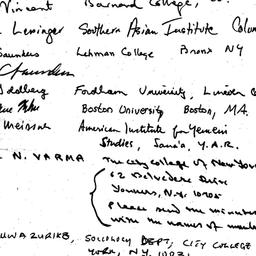 Vincent Barnard College,
Leninger Southern Asian Institute Colum
Saunders Lehman College Bronx NY
Goldberg Fordham University, Lincoln C
Boston University Boston, MA.
American Institute for Yemeni
Studies, Sana'a, Y.A.R.
N. VARMA The City College of New York
52 Belvedere Drive
Yonkers, N.Y. 10705
Please send me minutes
with the names of
UWAZURIKE, SOCIOLOGY DEPT, CITY COLLEGE
YORK, NY. 1003